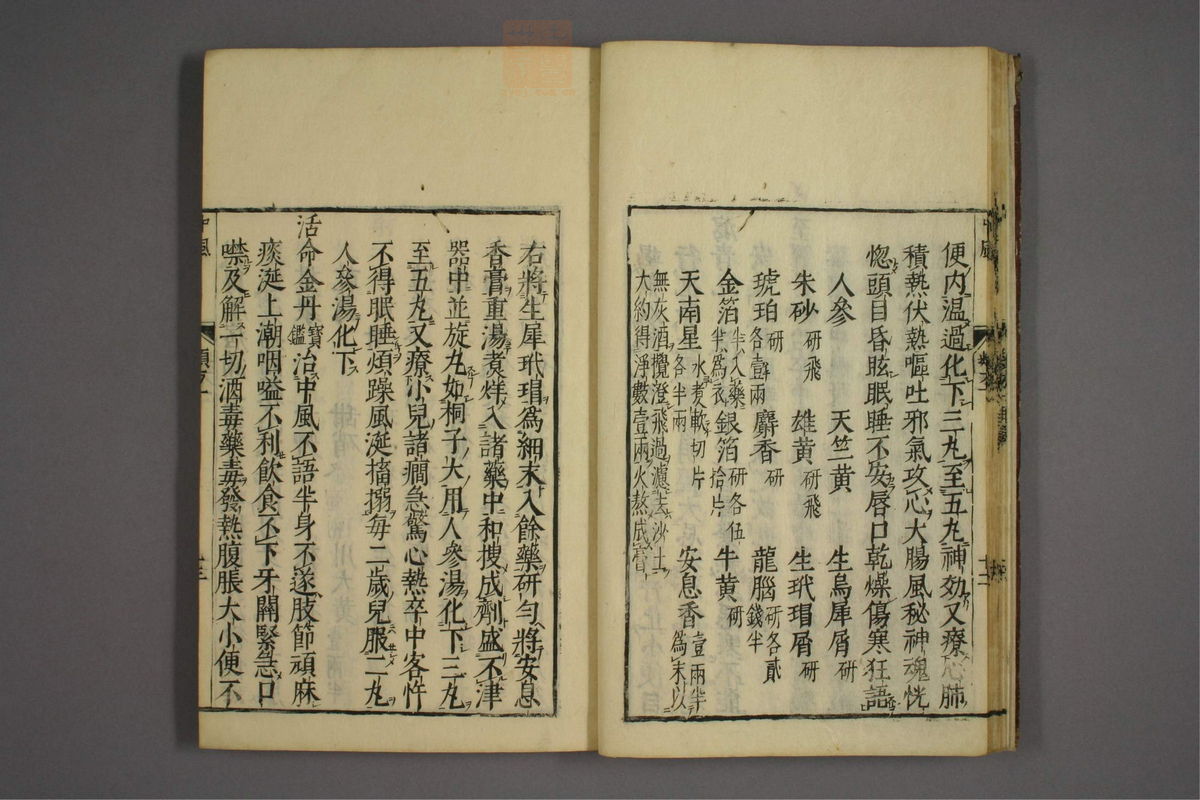 便内温過化下三丸至五丸神効又療心肺
積熱伏熱嘔吐邪氣攻心大腸風秘神魂恍
惚頭目昏眩眠睡不安唇口乾燥傷寒狂語
人參 天竺黃 生烏犀屑研
朱砂研飛 雄黃研飛 生玳瑁屑研
琥珀 麝香研 龍腦研各貳錢半
各壹兩
金箔半入藥半爲衣 銀箔研各伍拾片 牛黃研
天南星水煮軟切片各半兩 安息香壹兩半爲末以
無灰酒攪澄飛過濾去沙土
大約得淨數壹兩火熬成膏
右將生犀玳瑁爲細末入餘藥研勻將安息
香膏重湯煮烊入諸藥中和搜成劑盛不津
器中並旋丸如桐子大用人參湯化下三丸
至五丸又療小兒諸癇急驚心熱卒中客忤
不得眠睡煩躁風涎搐搦每二歲兒服二丸
人參湯化下
活命金丹寶鑑治中風不語半身不遂肢節頑麻
痰涎上潮咽嗌不利飲食不下牙關緊急口
噤及解一切酒毒藥毒發熱腹脹大小便不
中風
十三